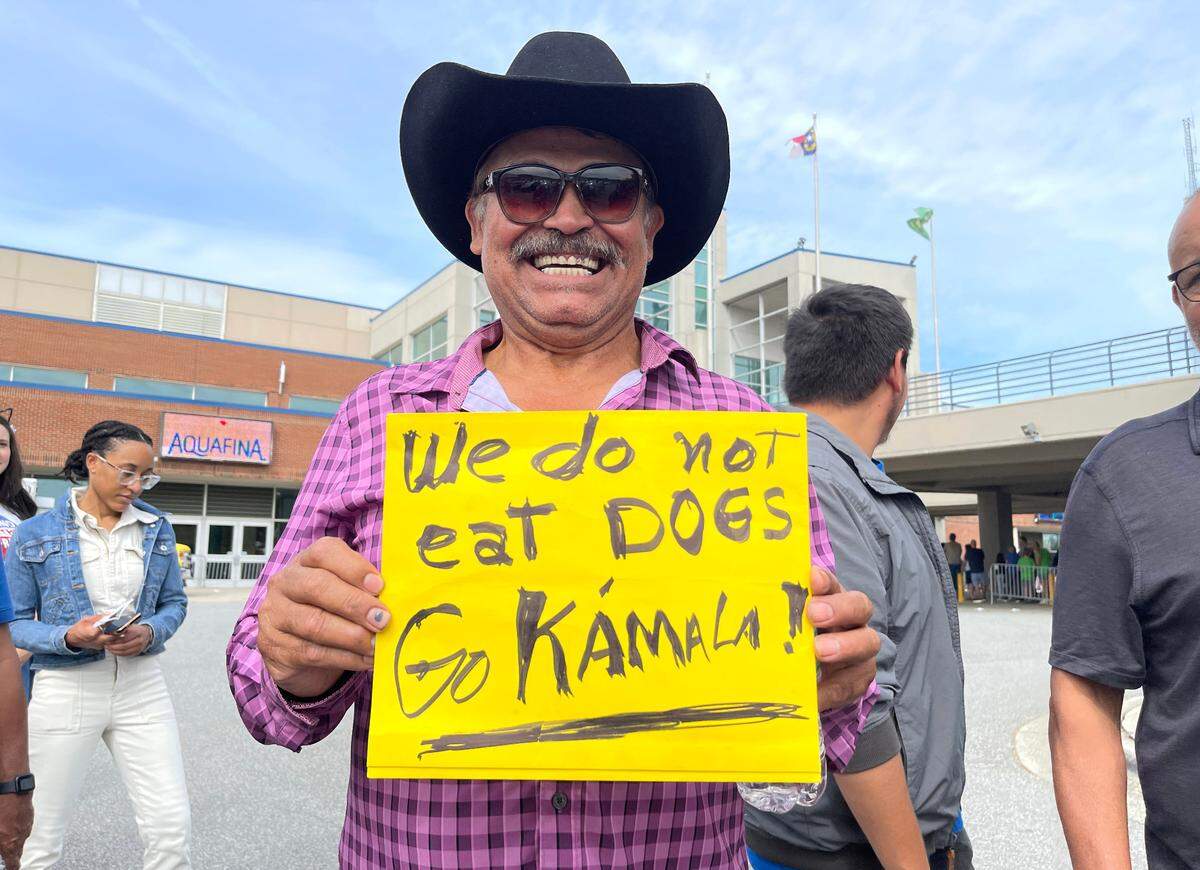 AQUAFINA
We do not
eat DOGS
Go KÁMALA!